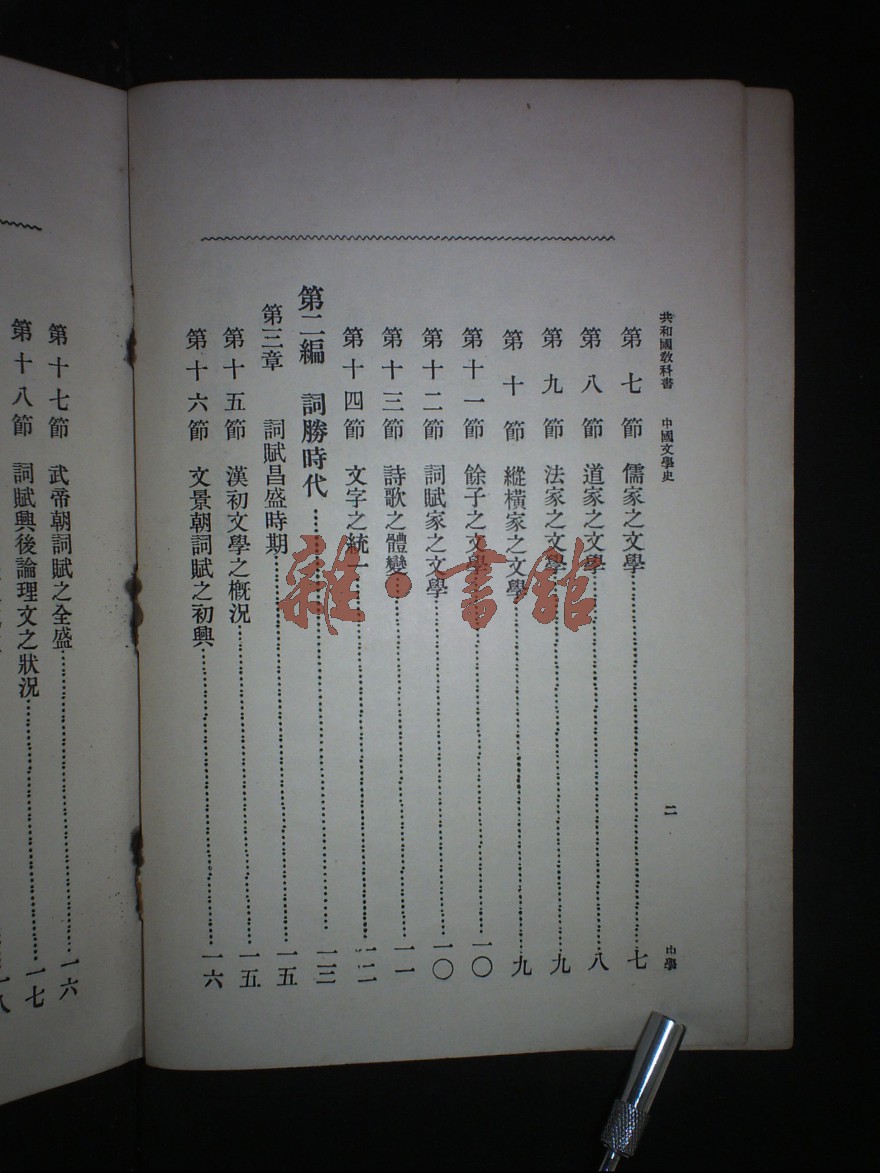 共和國教科書 中國文學史 二 中學
第七節 儒家之文學……七
第八節 道家之文學……八
第九節 法家之文學……九
第十節 縱橫家之文學……九
第十一節 餘子之文學……一〇
第十二節 詞賦家之文學……一〇
第十三節 詩歌之體變……一一
第十四節 文字之統一……一二
第二編 詞勝時代……一三
第三章 詞賦昌盛時期……一五
第十五節 漢初文學之槪況……一五
第十六節 文景朝詞賦之初興……一六
第十七節 武帝朝詞賦之全盛……一六
第十八節 詞賦興後論理文之狀況……一七
一八
雜·書館